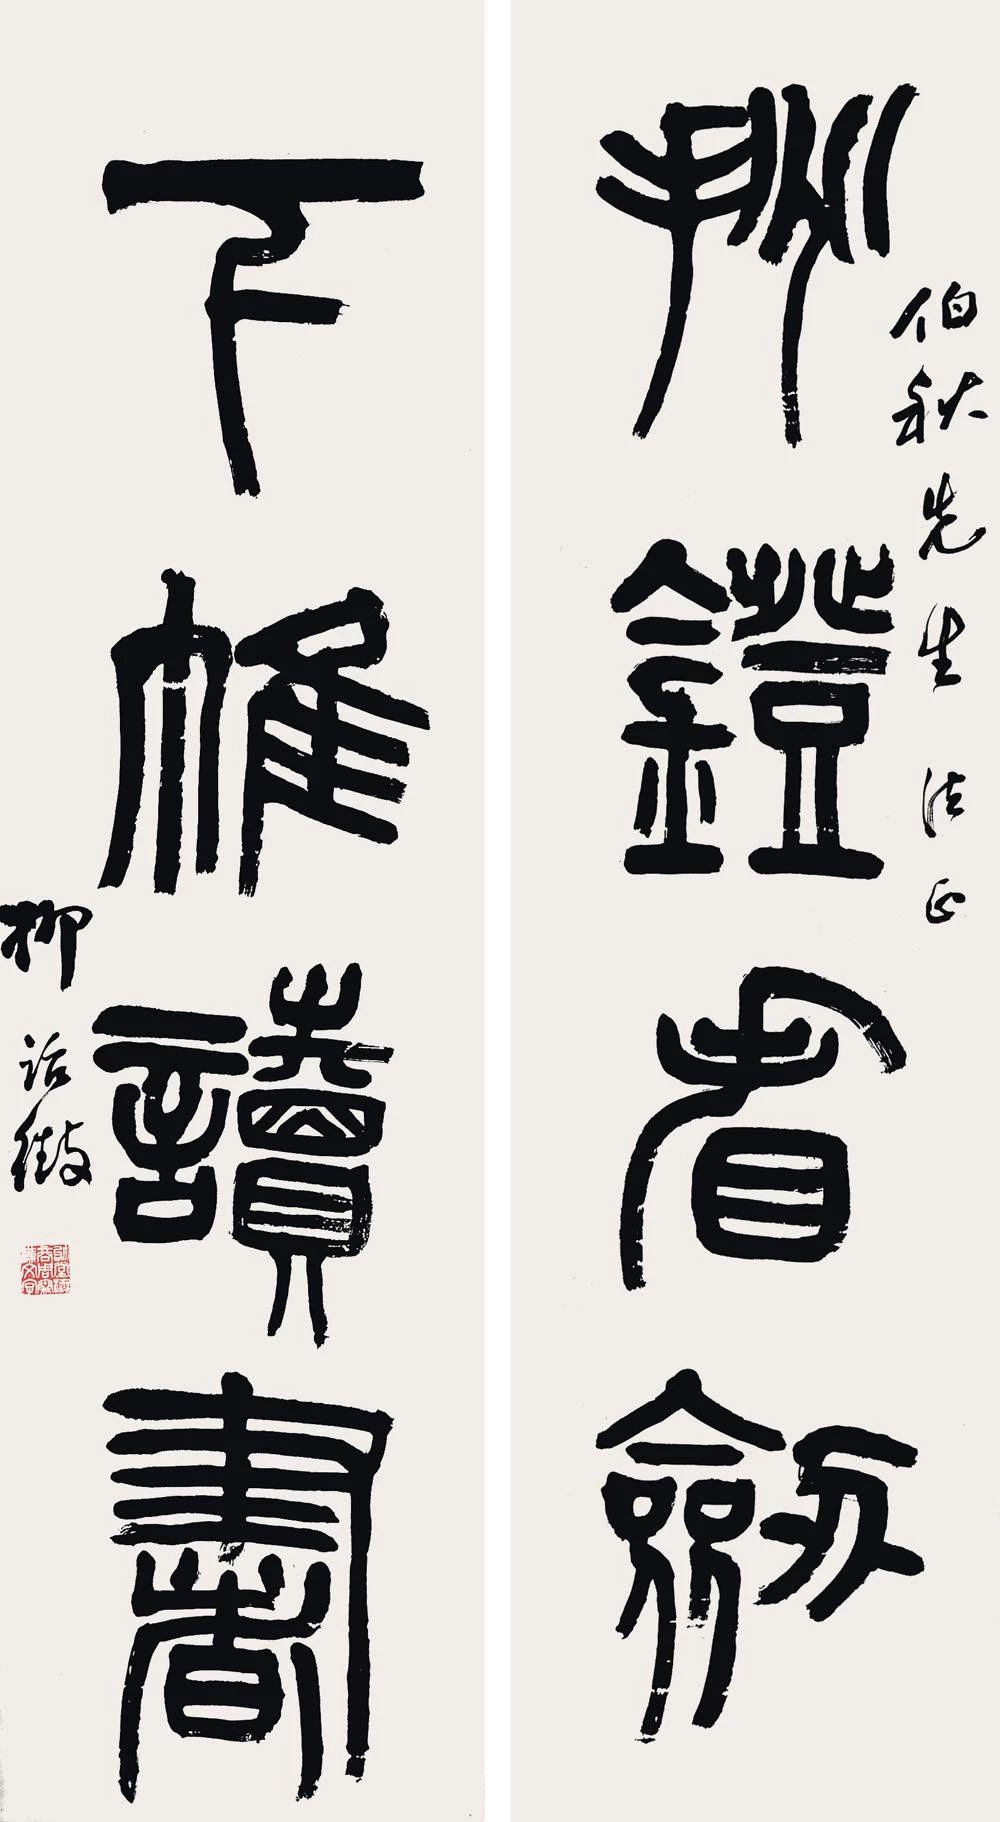 伯秋先生 法正
挑鐙看劍
下帷讀書
柳詒徵